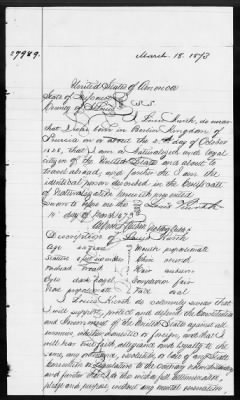 29949.
March 18. 1873
United States of America
State of
County of St Louis } S.S.
I Louis Kursh, do swear
that I was born in Berlin Kingdom of
Prussia on or about the day of October
that I am a naturalized and loyal
citizen of the United States and about to
travel abroad, and further that I am the
identical person described in the Certificate
of Naturalization herewith presented
Sworn to before me this
18 day of March 1873
Notary Public
Description of Louis Kursh
Age
Mouth proportionate
Stature
Chin round
Forehead broad
Hair auburn
Eyes dark hazel
Complexion fair
Nose proportionate
Face oval
I Louis Kursh do solemnly swear that
I will support, protect and defend the Constitution
and Government of the United States against all
enemies, whether domestic or foreign, and that I
will bear true faith, allegiance and loyalty to the
same, any ordinance, resolution or law of any State
Convention or Legislature to the contrary notwithstanding
and further that I do this with a full determination,
pledge and purpose, without any mental reservation